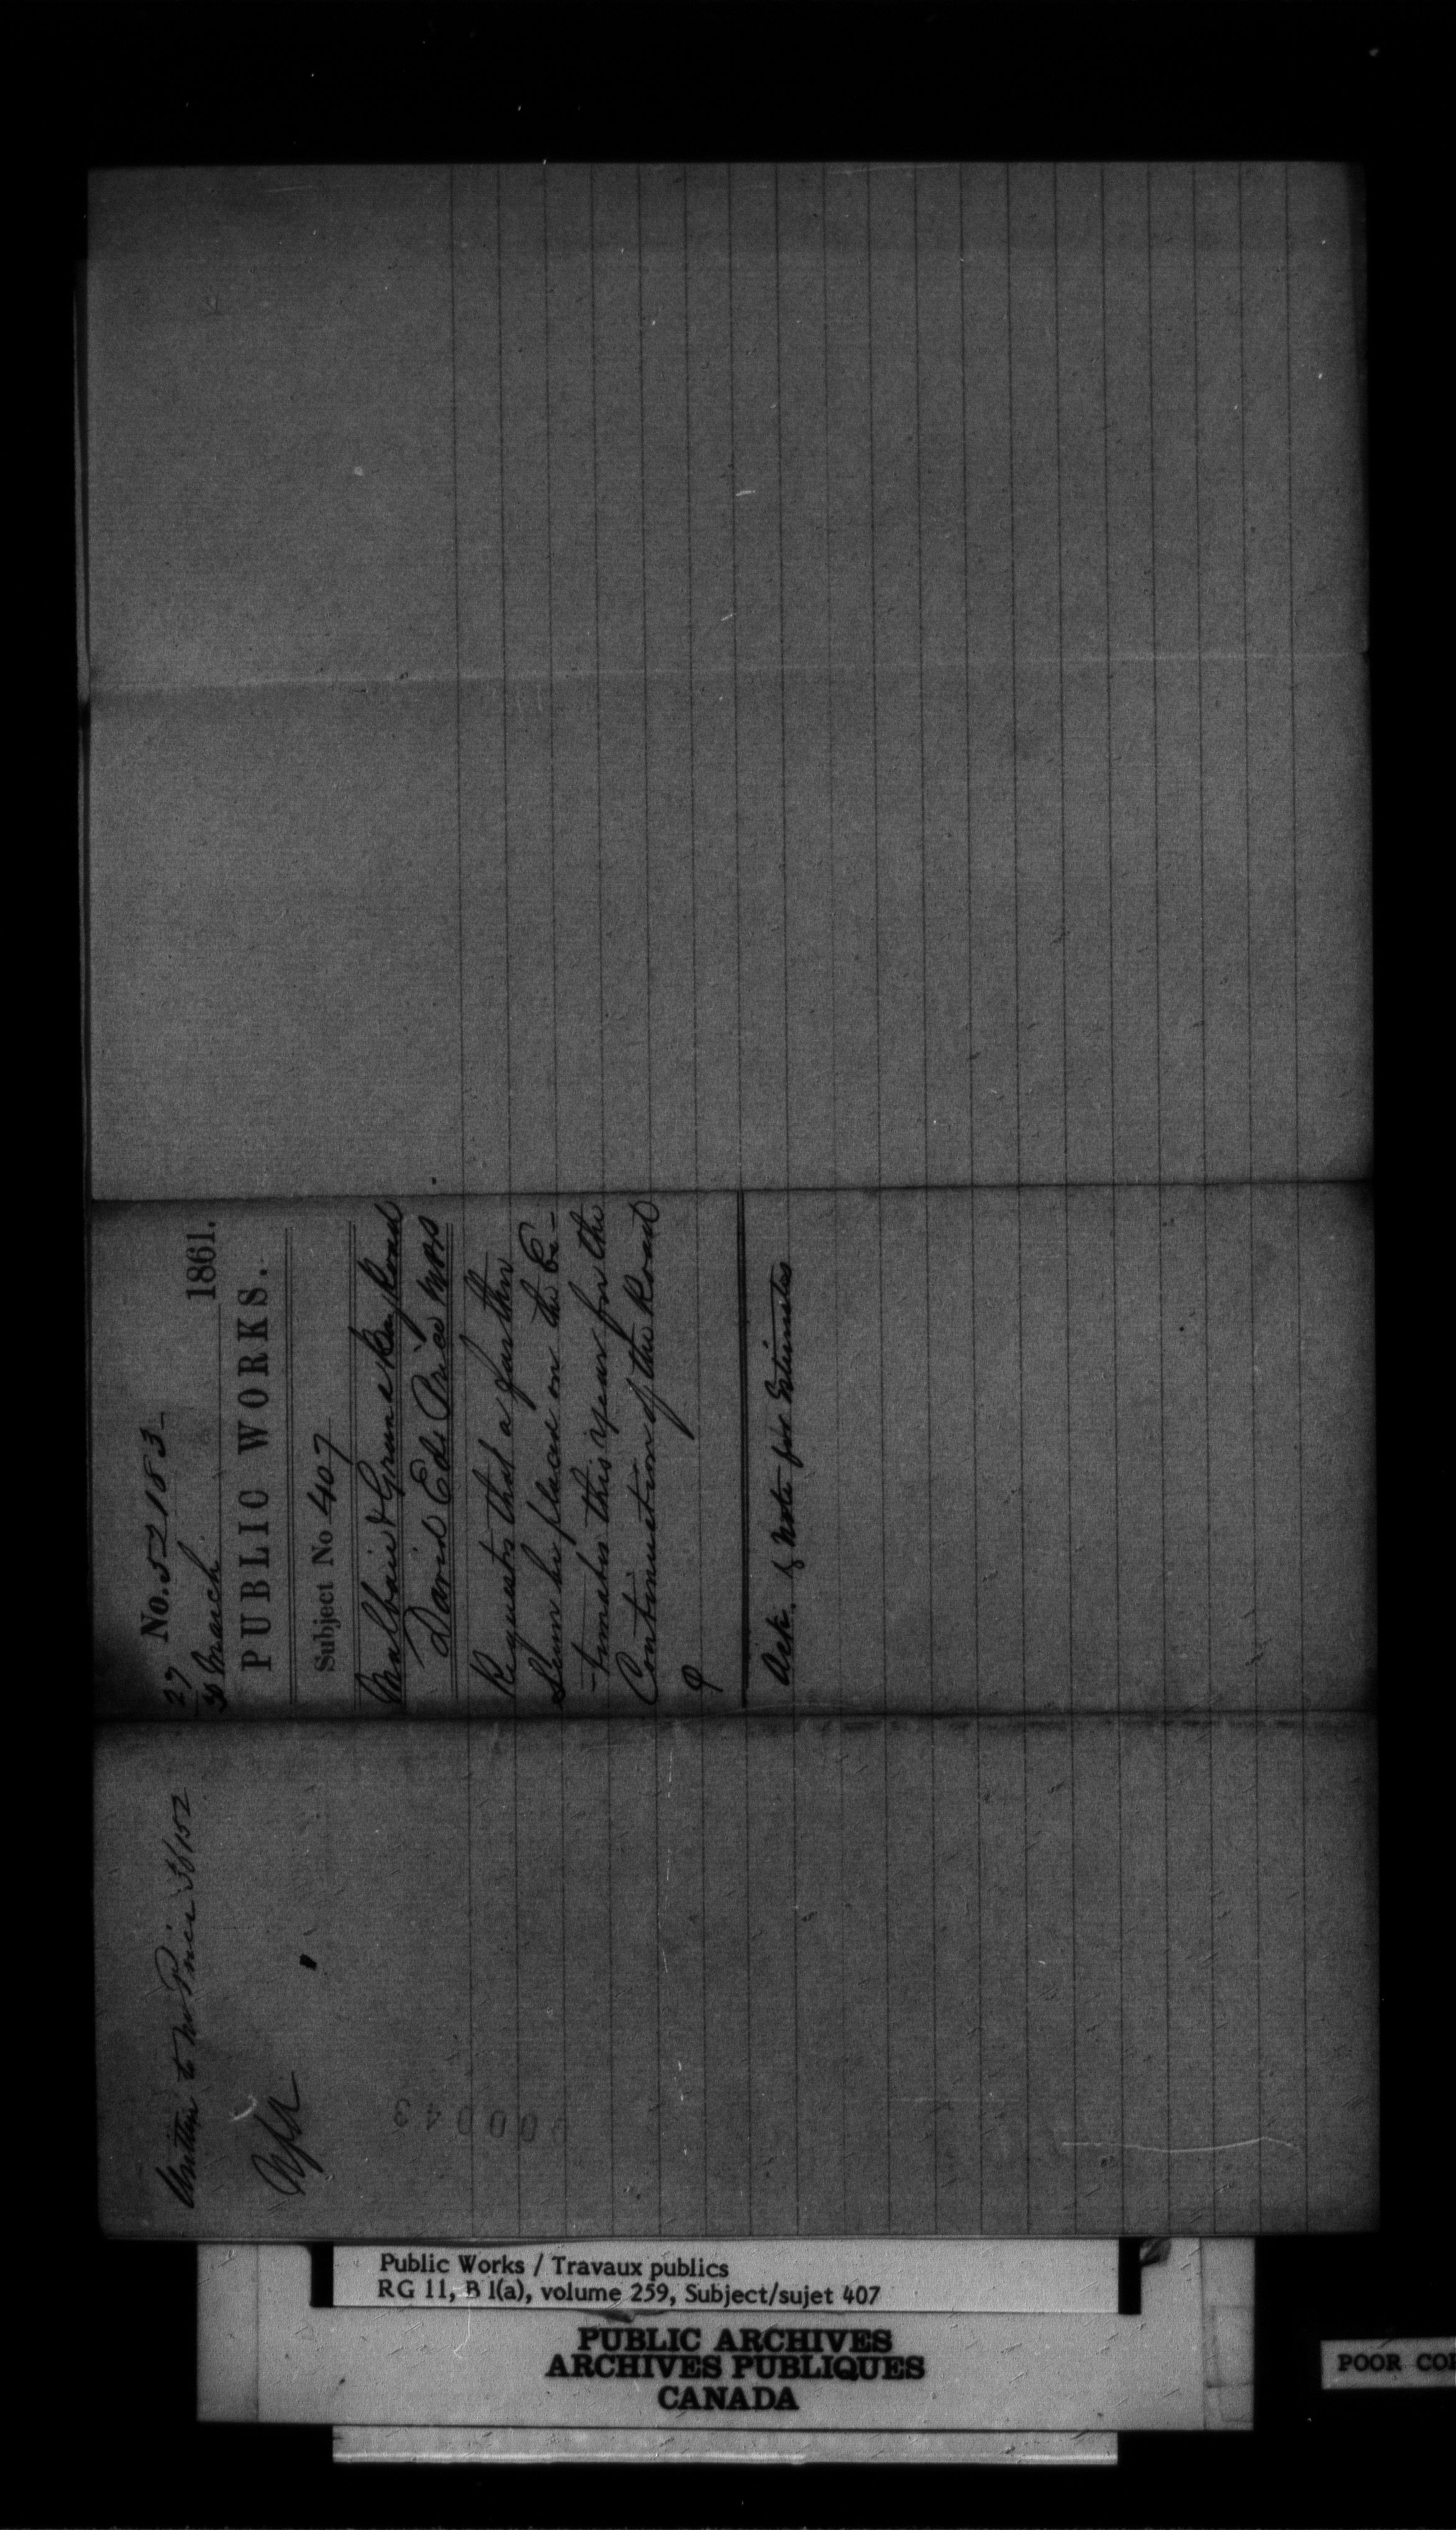 No. 52183
27
30 March 1861.
PUBLIC WORKS.
Subject No 407
Malbaie & Grande Bay Road
David Ed. Price MPP
Requests that a further
Sum be placed on the Es-
-timates this year for the
Continuation of the Road
Ack. & Note for Estimates
Written to Mr Price 36152
00043
Public Works / Travaux publics
RG 11, B 1(a), volume 259, Subject/sujet 407
PUBLIC ARCHIVES
ARCHIVES PUBLIQUES
CANADA
POOR